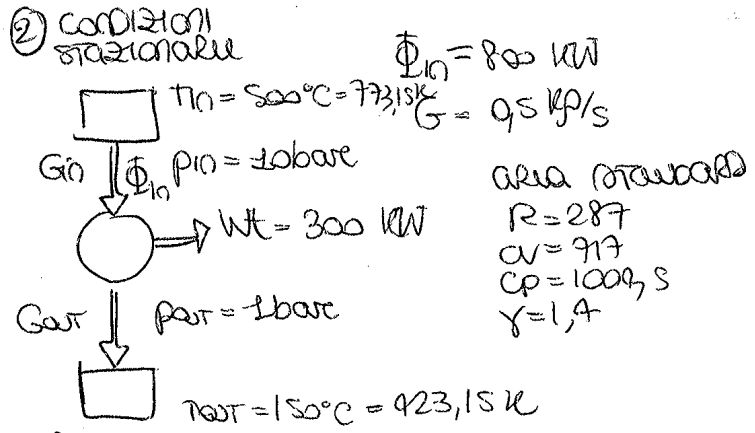 ② CONDIZIONI
STAZIONARIE
Φin = 800 kW
Tin = 500°C = 773,15K
G = 0,5 kg/s
Gin Φin pin = 10bare
ARIA STANDARD
Wt = 300 kW
R = 287
cv = 717
cp = 1004,5
γ = 1,4
Gout pout = 1bare
Tout = 150°C = 423,15 K